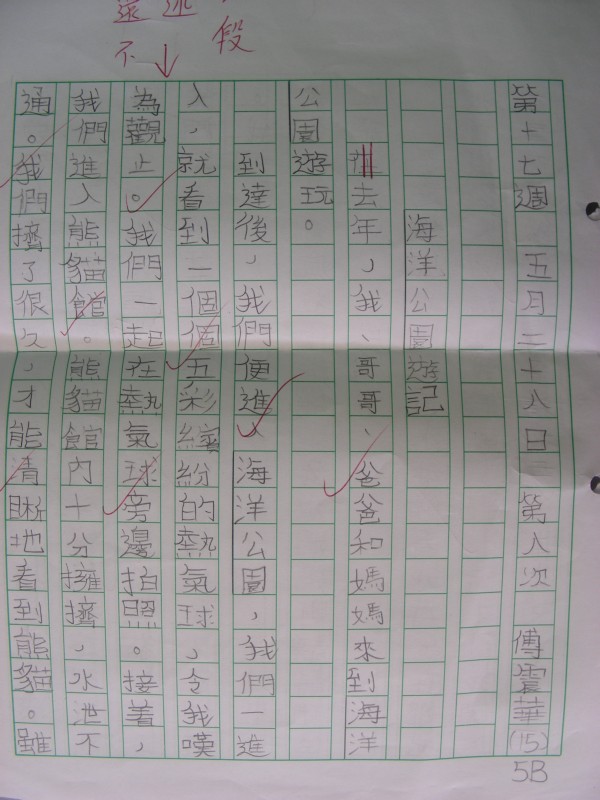 段
不
第十七週 五月二十八日 第八次 傅華(15)
5B
海洋公園遊記
去年，我、哥哥、爸爸和媽媽來到海洋
公園遊玩。
到達後，我們便進入海洋公園，我們一進
入，就看到一個個五彩繽紛的熱氣球，令我嘆
為觀止。我們一起在熱氣球旁邊拍照。接着，
我們進入熊貓館。熊貓館內十分擁擠，水泄不
通。我們擠了很久，才能清晰地看到熊貓。雖